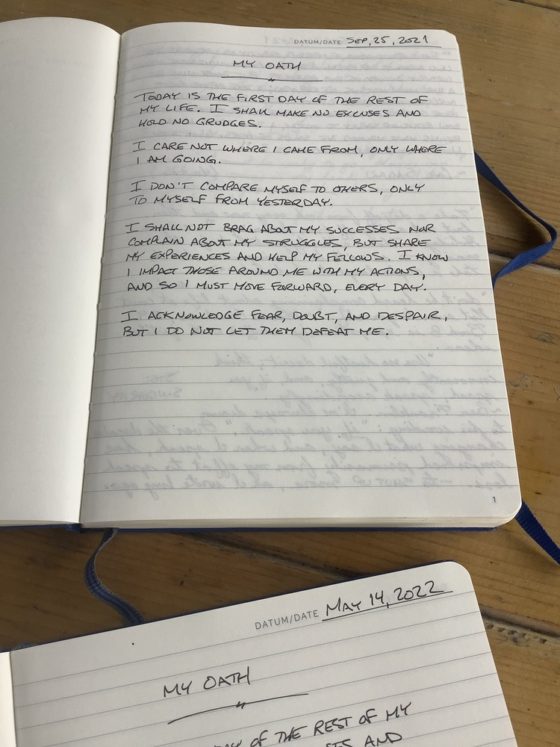 DATUM/DATE SEP, 25, 2021
MY OATH
TODAY IS THE FIRST DAY OF THE REST OF
MY LIFE. I SHALL MAKE NO EXCUSES AND
HOLD NO GRUDGES.
I CARE NOT WHERE I CAME FROM, ONLY WHERE
I AM GOING.
I DON'T COMPARE MYSELF TO OTHERS, ONLY
TO MYSELF FROM YESTERDAY.
I SHALL NOT BRAG ABOUT MY SUCCESSES NOR
COMPLAIN ABOUT MY STRUGGLES, BUT SHARE
MY EXPERIENCES AND HELP MY FELLOWS. I KNOW
I IMPACT THOSE AROUND ME WITH MY ACTIONS,
AND SO I MUST MOVE FORWARD, EVERY DAY.
I ACKNOWLEDGE FEAR, DOUBT, AND DESPAIR,
BUT I DO NOT LET THEM DEFEAT ME.
1
DATUM/DATE MAY 14, 2022
MY OATH
OF THE REST OF MY
AND